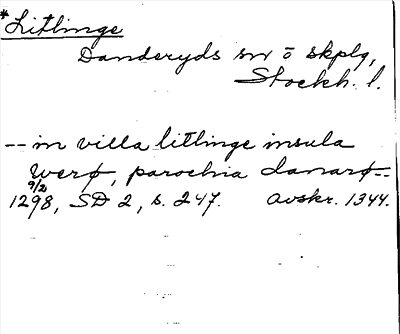 *Litlinge
Danderyds sn o skplg,
Stockh. l.
-- in villa litlinge insula
werø, parochia danarø--
9/2
1298, SD 2, s. 247. Avskr. 1344.